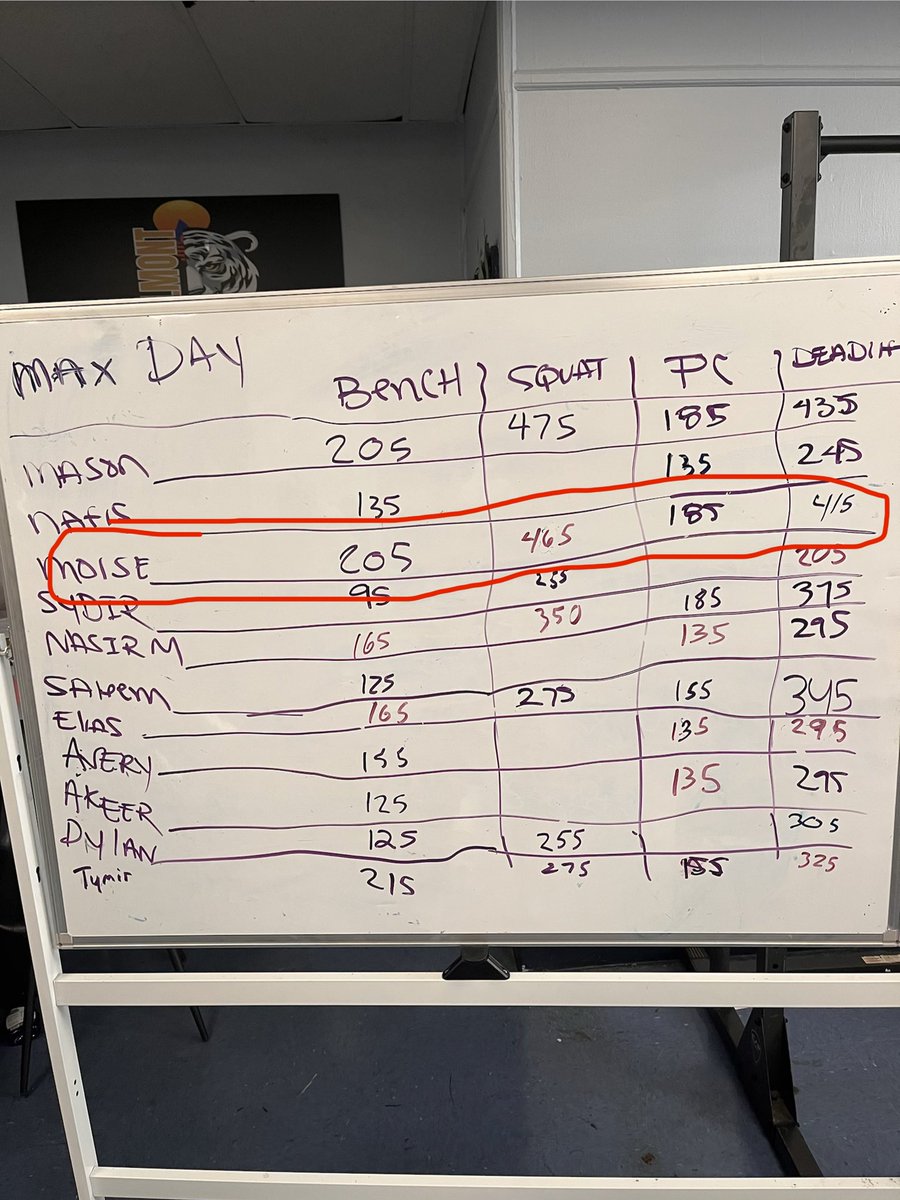 LMONT
MAX DAY BENCH SQUAT PC DEADLIF
MASON 205 475 185 435
NAFIS 135 135 245
MOISE 205 465 185 415
SYDIR 95 255 205
NASIR M 165 350 185 375
SAHEEM 125 135 295
ELIAS 165 275 155 345
AVERY 155 135 295
AKEER 125 135 295
DYLAN 125 255 305
Tymir 215 275 155 325